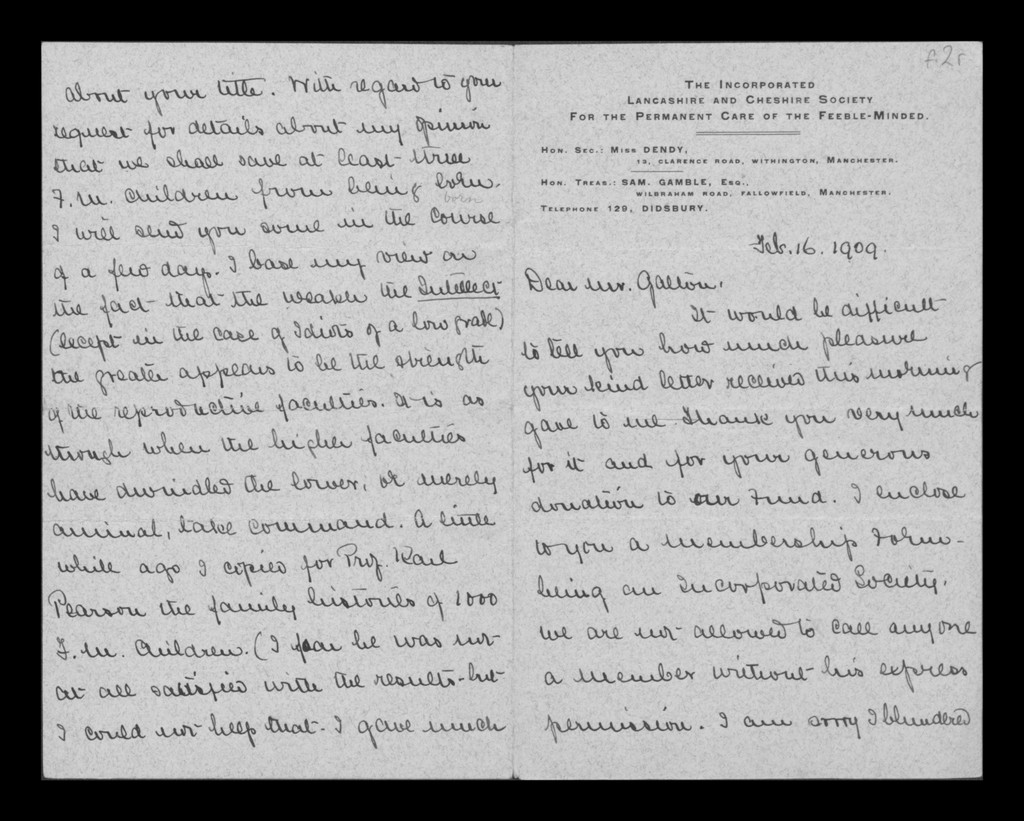 f2r
THE INCORPORATED
LANCASHIRE AND CHESHIRE SOCIETY
FOR THE PERMANENT CARE OF THE FEEBLE-MINDED.
HON. SEC.: MISS DENDY,
13, CLARENCE ROAD, WITHINGTON, MANCHESTER.
HON. TREAS.: SAM. GAMBLE, ESQ.,
WILBRAHAM ROAD, FALLOWFIELD, MANCHESTER.
TELEPHONE 129, DIDSBURY.
Feb. 16. 1909.
Dear Mr. Galton,
It would be difficult
to tell you how much pleasure
your kind letter received this morning
gave to me. Thank you very much
for it and for your generous
donation to our Fund. I enclose
to you a Membership Form -
being an Incorporated Society,
we are not allowed to call anyone
a Member without his express
permission. I am sorry I blundered
about your title. With regard to your
request for details about my opinion
that we shall save at least three
F.M. Children from being born.
born
I will send you some in the course
of a few days. I base my view on
the fact that the weaker the Intellect
(except in the case of Idiots of a low grade)
the greater appears to be the strength
of the reproductive faculties. It is as
though when the higher faculties
have dwindled the lower, or merely
animal, take command. A little
while ago I copied for Prof. Karl
Pearson the family histories of 1000
F.M. Children. (I fear he was not
at all satisfied with the results - but
I could not help that. I gave much